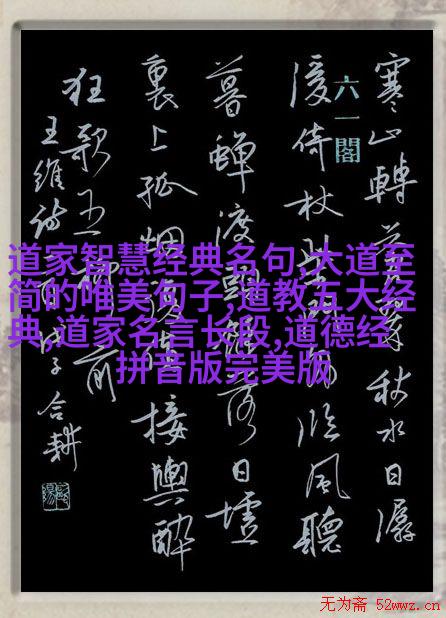 道家智慧经典名句,大道至
简的唯美句子,道教五大经
典,道家名言长段,道德经
拼音版完美版
六一閣
寒山轉蒼翠秋水日潺
湲倚杖柴門外臨風聽
暮蟬渡頭餘落日墟
裏上孤烟復值接輿醉
狂歌五柳前
王維詩 合耕
无为斋 52wwz.cn